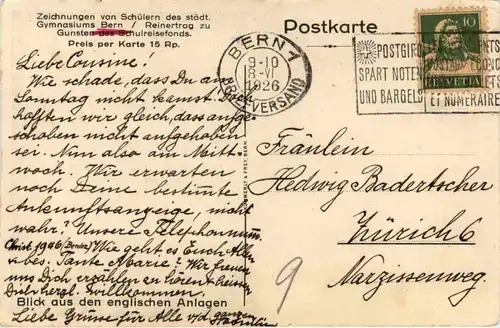 Zeichnungen von Schülern des städt.
Gymnasiums Bern / Reinertrag zu
Gunsten des Schulreisefonds.
Preis per Karte 15 Rp.
Postkarte
BERN 1
9-10
8.VI
1926
BRIEFVERSAND
POSTGIRO
SPART NOTEN
UND BARGELD
ET NUMÉRAIRE
10
HELVETIA
Liebe Cousine!
Wie schade, dass Du am
Sonntag nicht kamst. Doch
hofften wir gleich, dass aufge-
schoben nicht aufgehoben
sei. Nun also am Mitt-
woch. Wir erwarten
noch Deine bestimmte
Ankunftsanzeige, nicht
wahr? Unsere Telephonnum.
Christ. 1946 Wie geht es Euch Allen
bes. Tante Marie? Wir freuen
uns Dich erzählen zu hören. heissen
Dich herzl. Willkommen.
Blick aus den englischen Anlagen
Liebe Grüsse für Alle v/d. ganzen
Familie
Fräulein
Hedwig Badertscher
Zürich 6
Narzissenweg.
9